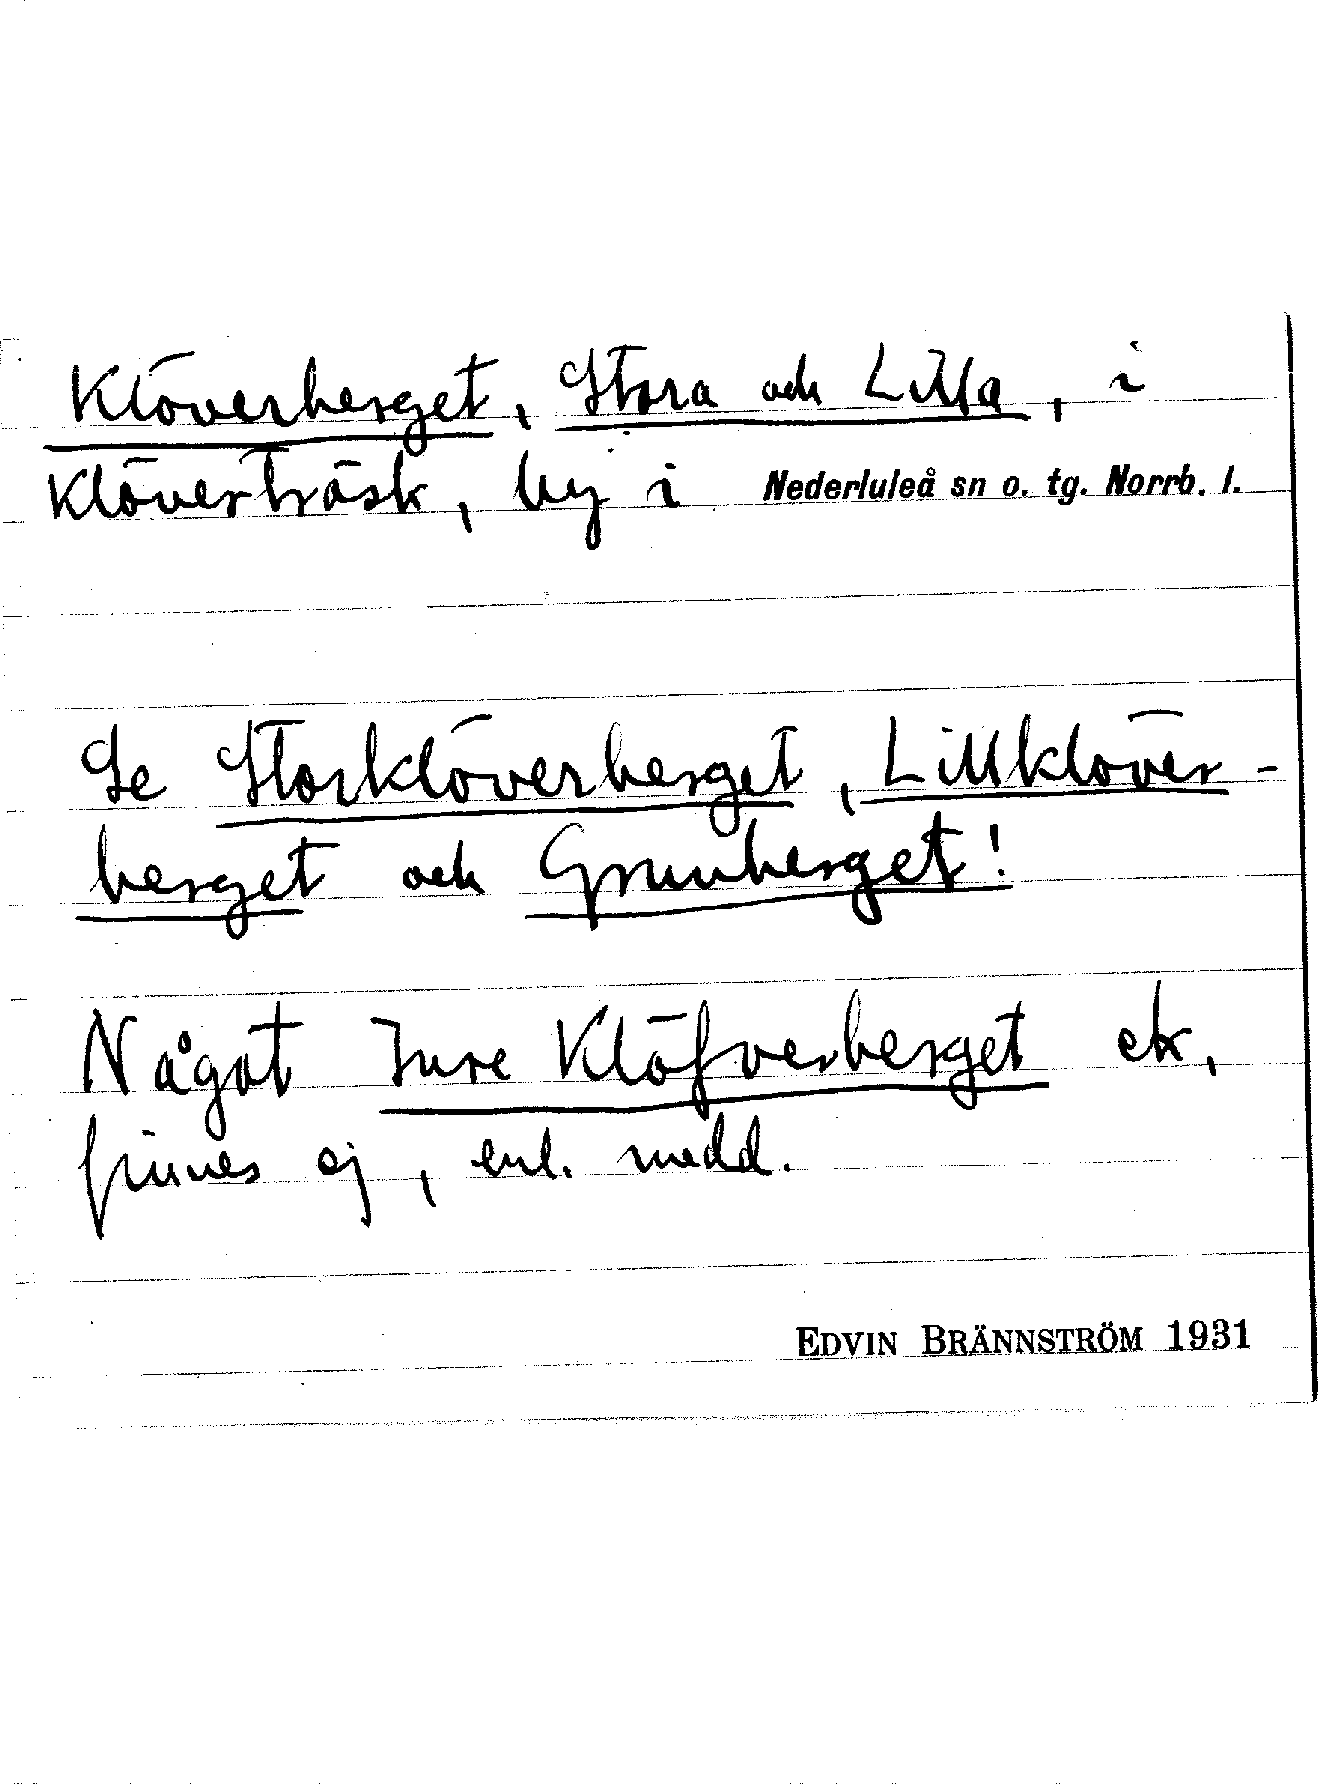 Klöverberget, Stora och Lilla, i
Klöverträsk, by i Nederluleå sn o. tg. Norrb. l.
Se Storklöverberget, Lillklöver-
berget och Gruvberget!
Något Jure Klöfverberget ek,
finnes ej, enl. medd.
EDVIN BRÄNNSTRÖM 1931